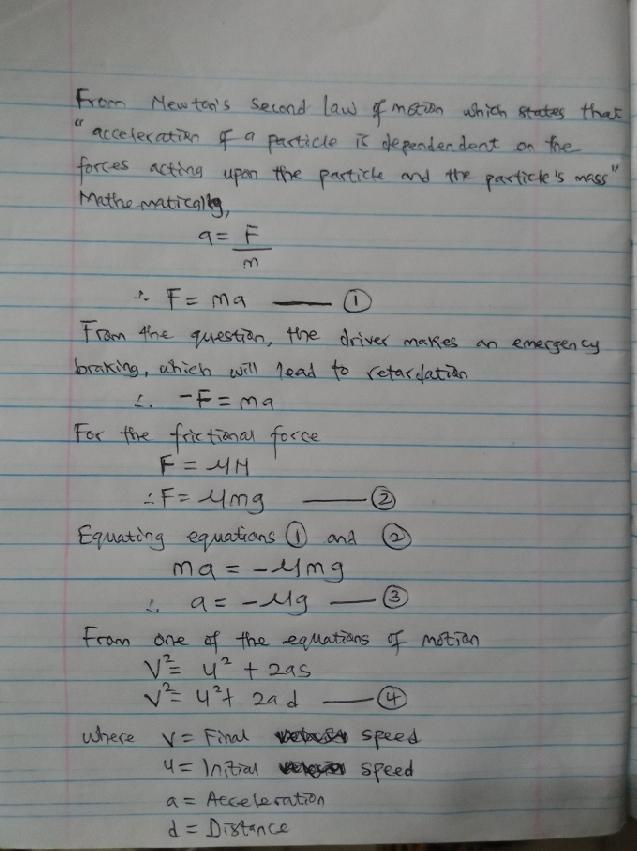 From Newton's second law of motion which states that
"acceleration of a particle is dependendent on the
forces acting upon the particle and the particle's mass"
Mathematically,
a = F
m
∴ F = ma ——— ①
From the question, the driver makes an emergency
braking, which will lead to retardation
∴ -F = ma
For the frictional force
F = μN
∴ F = μmg ——— ②
Equating equations ① and ②
ma = -μmg
∴ a = -μg ——— ③
From one of the equations of motion
V² = u² + 2as
V² = u² + 2ad ——— ④
where V = Final speed
u = Initial speed
a = Acceleration
d = Distance